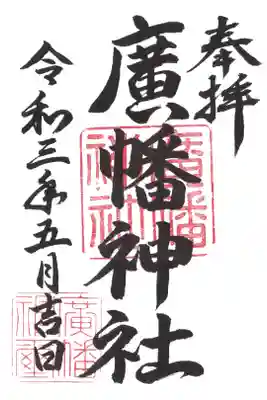 奉拝
廣幡神社
廣幡神社
令和三年五月吉日
廣幡神社